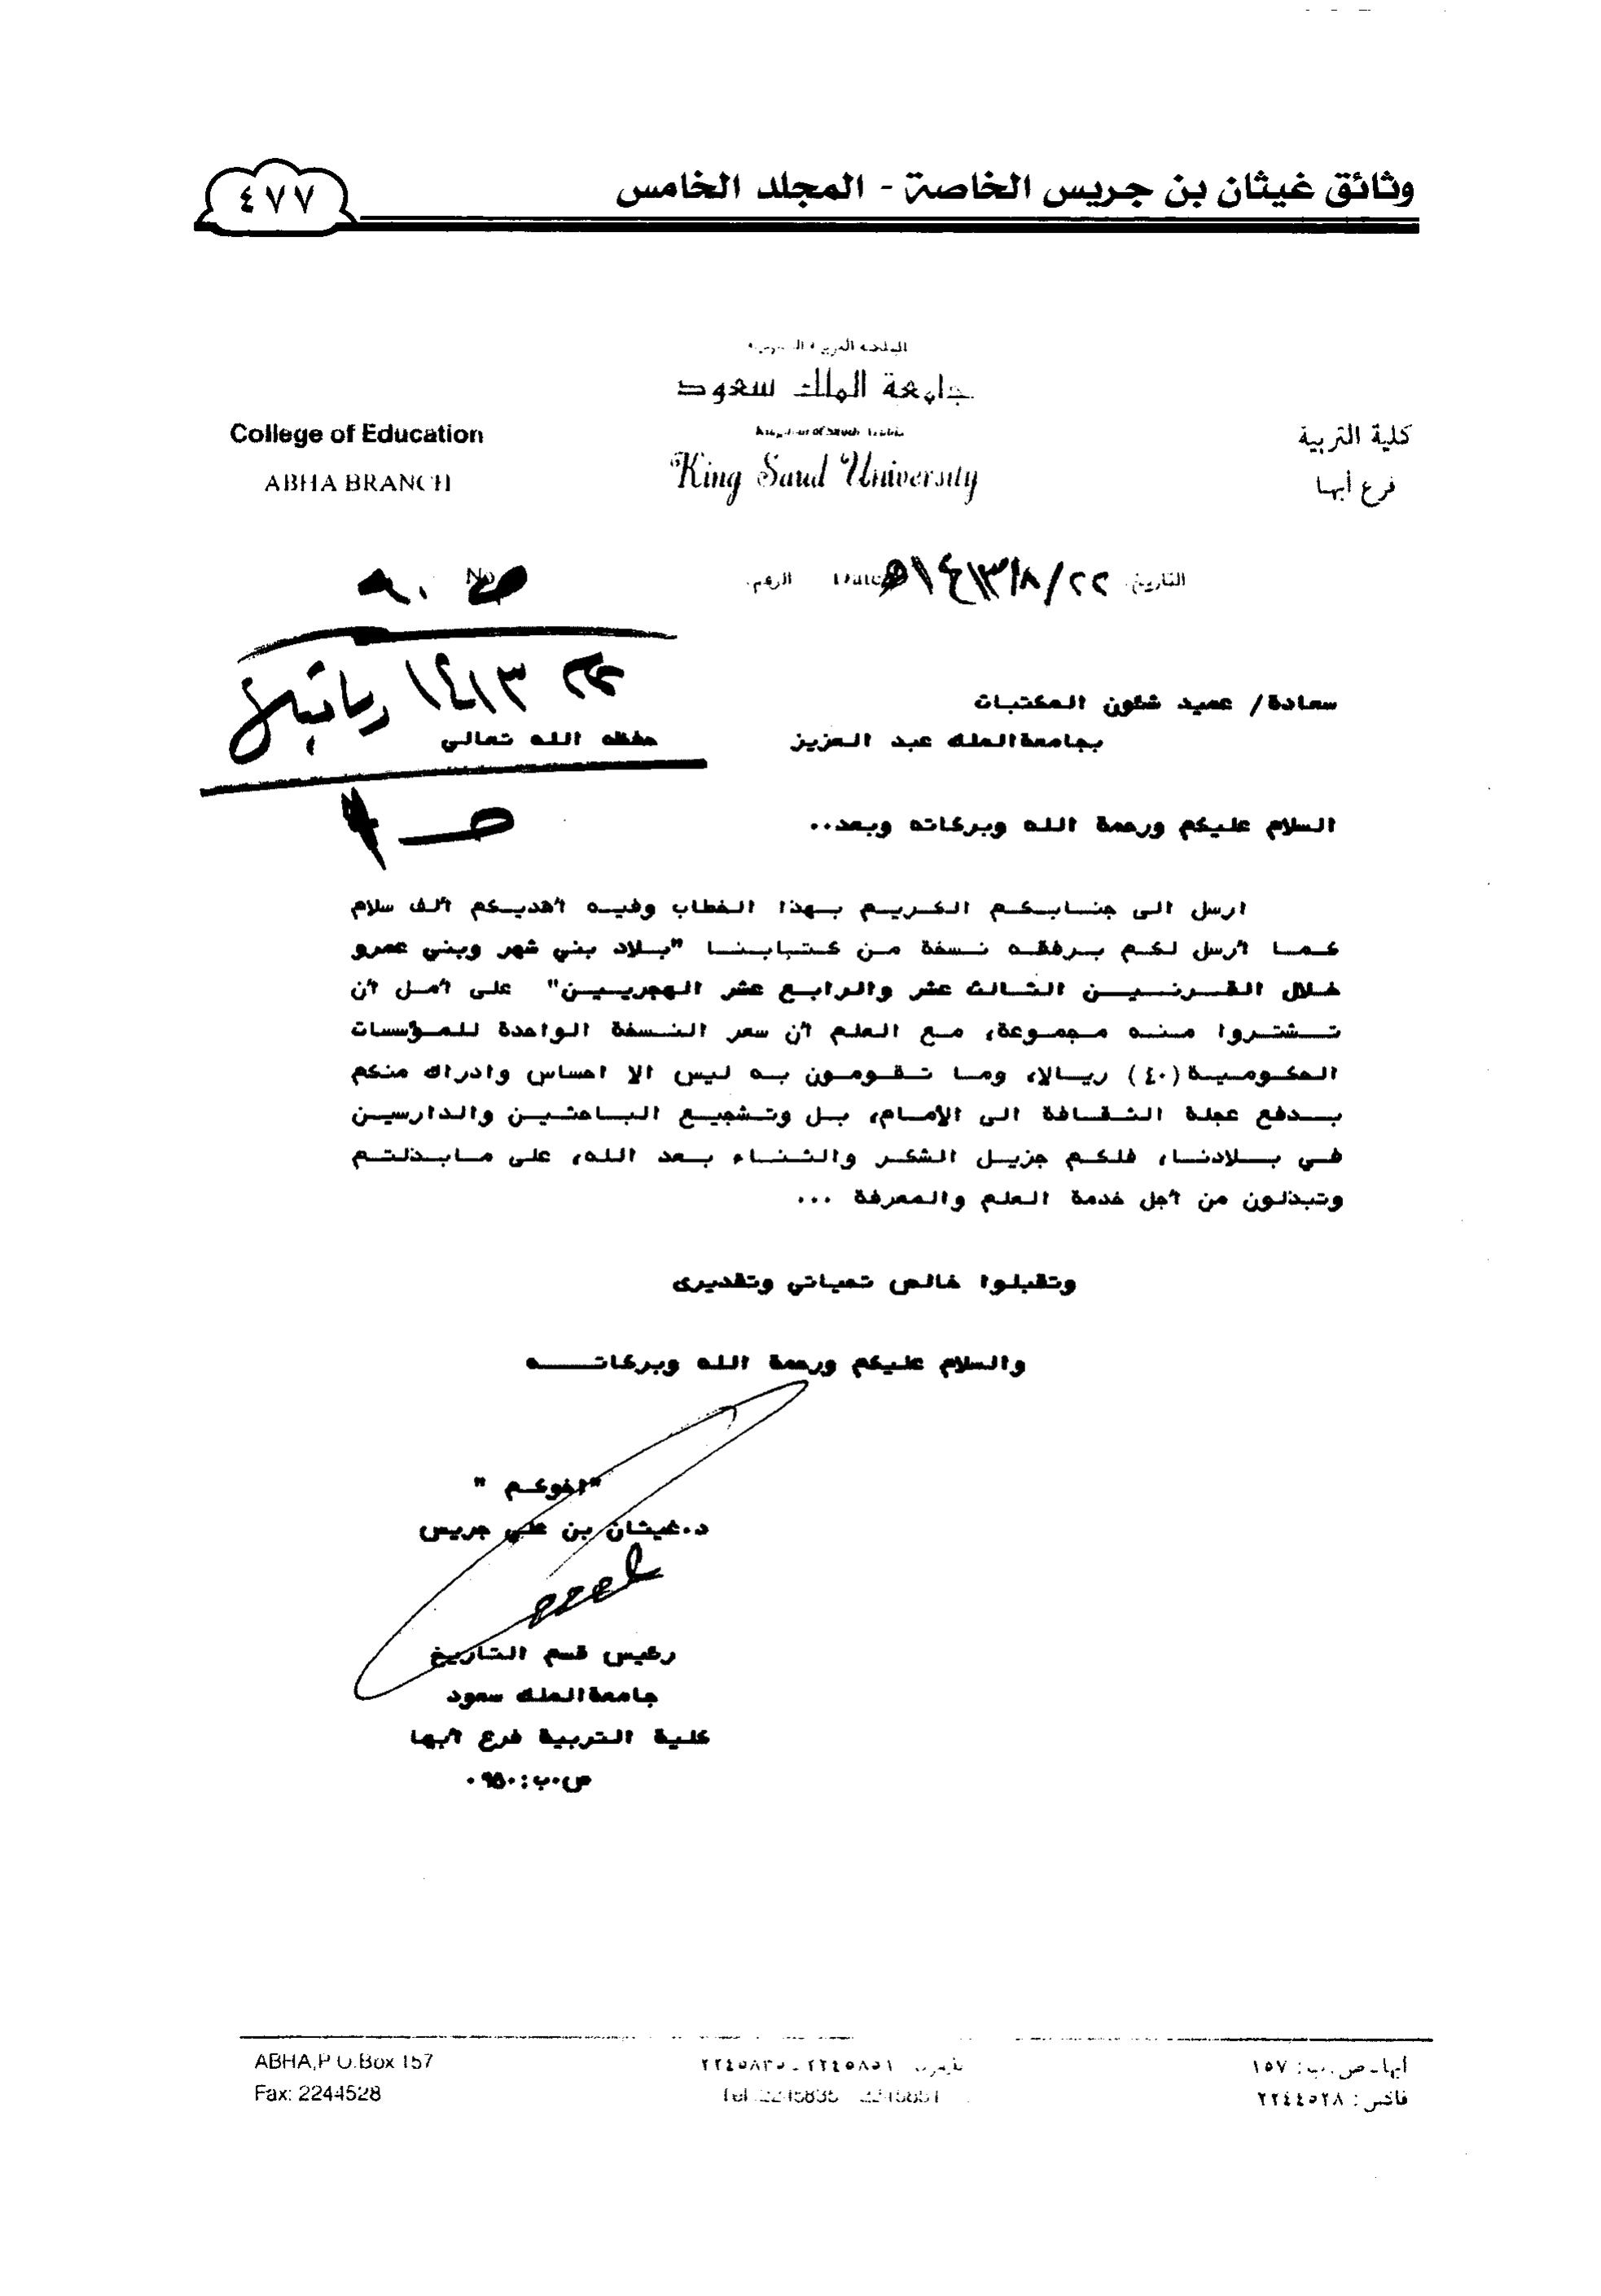 وثائق غيثان بن جريس الخاصة - المجلد الخامس
٤٧٧
المملكة العربية السعودية
جامعة الملك سعود
Kingdom of Saudi Arabia
King Saud University
College of Education
ABHA BRANCH
كلية التربية
فرع أبها
التاريخ: ٢٢/٨/١٤١٣هـ Date الرقم: No
سعادة/ عميد شئون المكتبات
بجامعة الملك عبد العزيز حفظه الله تعالى
السلام عليكم ورحمة الله وبركاته وبعد..
ارسل الى جنابكم الكريم بهذا الخطاب وفيه أهديكم ألف سلام
كما أرسل لكم برفقه نسخة من كتابنا "بلاد بني شهر وبني عمرو
خلال القرنين الثالث عشر والرابع عشر الهجريين" على أمل أن
تشتروا منه مجموعة، مع العلم أن سعر النسخة الواحدة للمؤسسات
الحكومية (٤٠) ريالا، وما تقومون به ليس الا احساس وادراك منكم
بدفع عجلة الثقافة الى الأمام، بل وتشجيع الباحثين والدارسين
في بلادنا، فلكم جزيل الشكر والثناء بعد الله، على مابذلتم
وتبذلون من أجل خدمة العلم والمعرفة ...
وتقبلوا خالص تحياتي وتقديرى
والسلام عليكم ورحمة الله وبركاته
"اخوكم "
د.غيثان بن علي جريس
رئيس قسم التاريخ
جامعة الملك سعود
كلية التربية فرع أبها
ص.ب:٩٥٠٠
ABHA,P.O.Box 157
Fax: 2244528
أبها - ص.ب: ١٥٧
فاكس: ٢٢٤٤٥٢٨